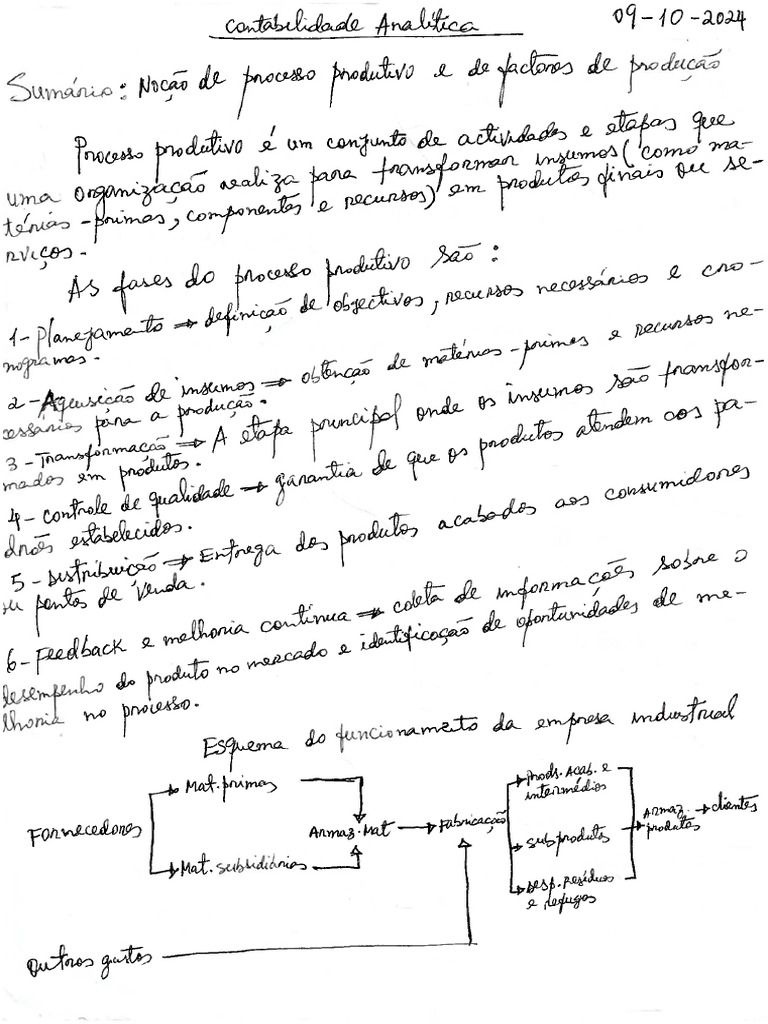 Contabilidade Analítica 09-10-2024
Sumário: Noção de processo produtivo e de factores de produção
Processo produtivo é um conjunto de actividades e etapas que
uma organização realiza para transformar insumos (como ma-
térias-primas, componentes e recursos) em produtos finais ou se-
rviços.
As fases do processo produtivo são:
1- Planejamento → definição de objectivos, recursos necessários e cro-
nogramas.
2- Aquisição de insumos → obtenção de matérias-primas e recursos ne-
cessários para a produção.
3- Transformação → A etapa principal onde os insumos são transfor-
mados em produtos.
4- controle de qualidade → garantia de que os produtos atendem aos pa-
drões estabelecidos.
5- Distribuição → Entrega dos produtos acabados aos consumidores
ou pontos de venda.
6- Feedback e melhoria contínua → coleta de informações sobre o
desempenho do produto no mercado e identificação de oportunidades de me-
lhoria no processo.
Esquema do funcionamento da empresa industrial
Fornecedores
Mat. primas
Mat. subsidiárias
Armaz. Mat → Fabricação
Prods. Acab. e
intermédios
subprodutos
Desp. Resíduos
e refugos
Armaz.
produtos
→ clientes
Outros gastos